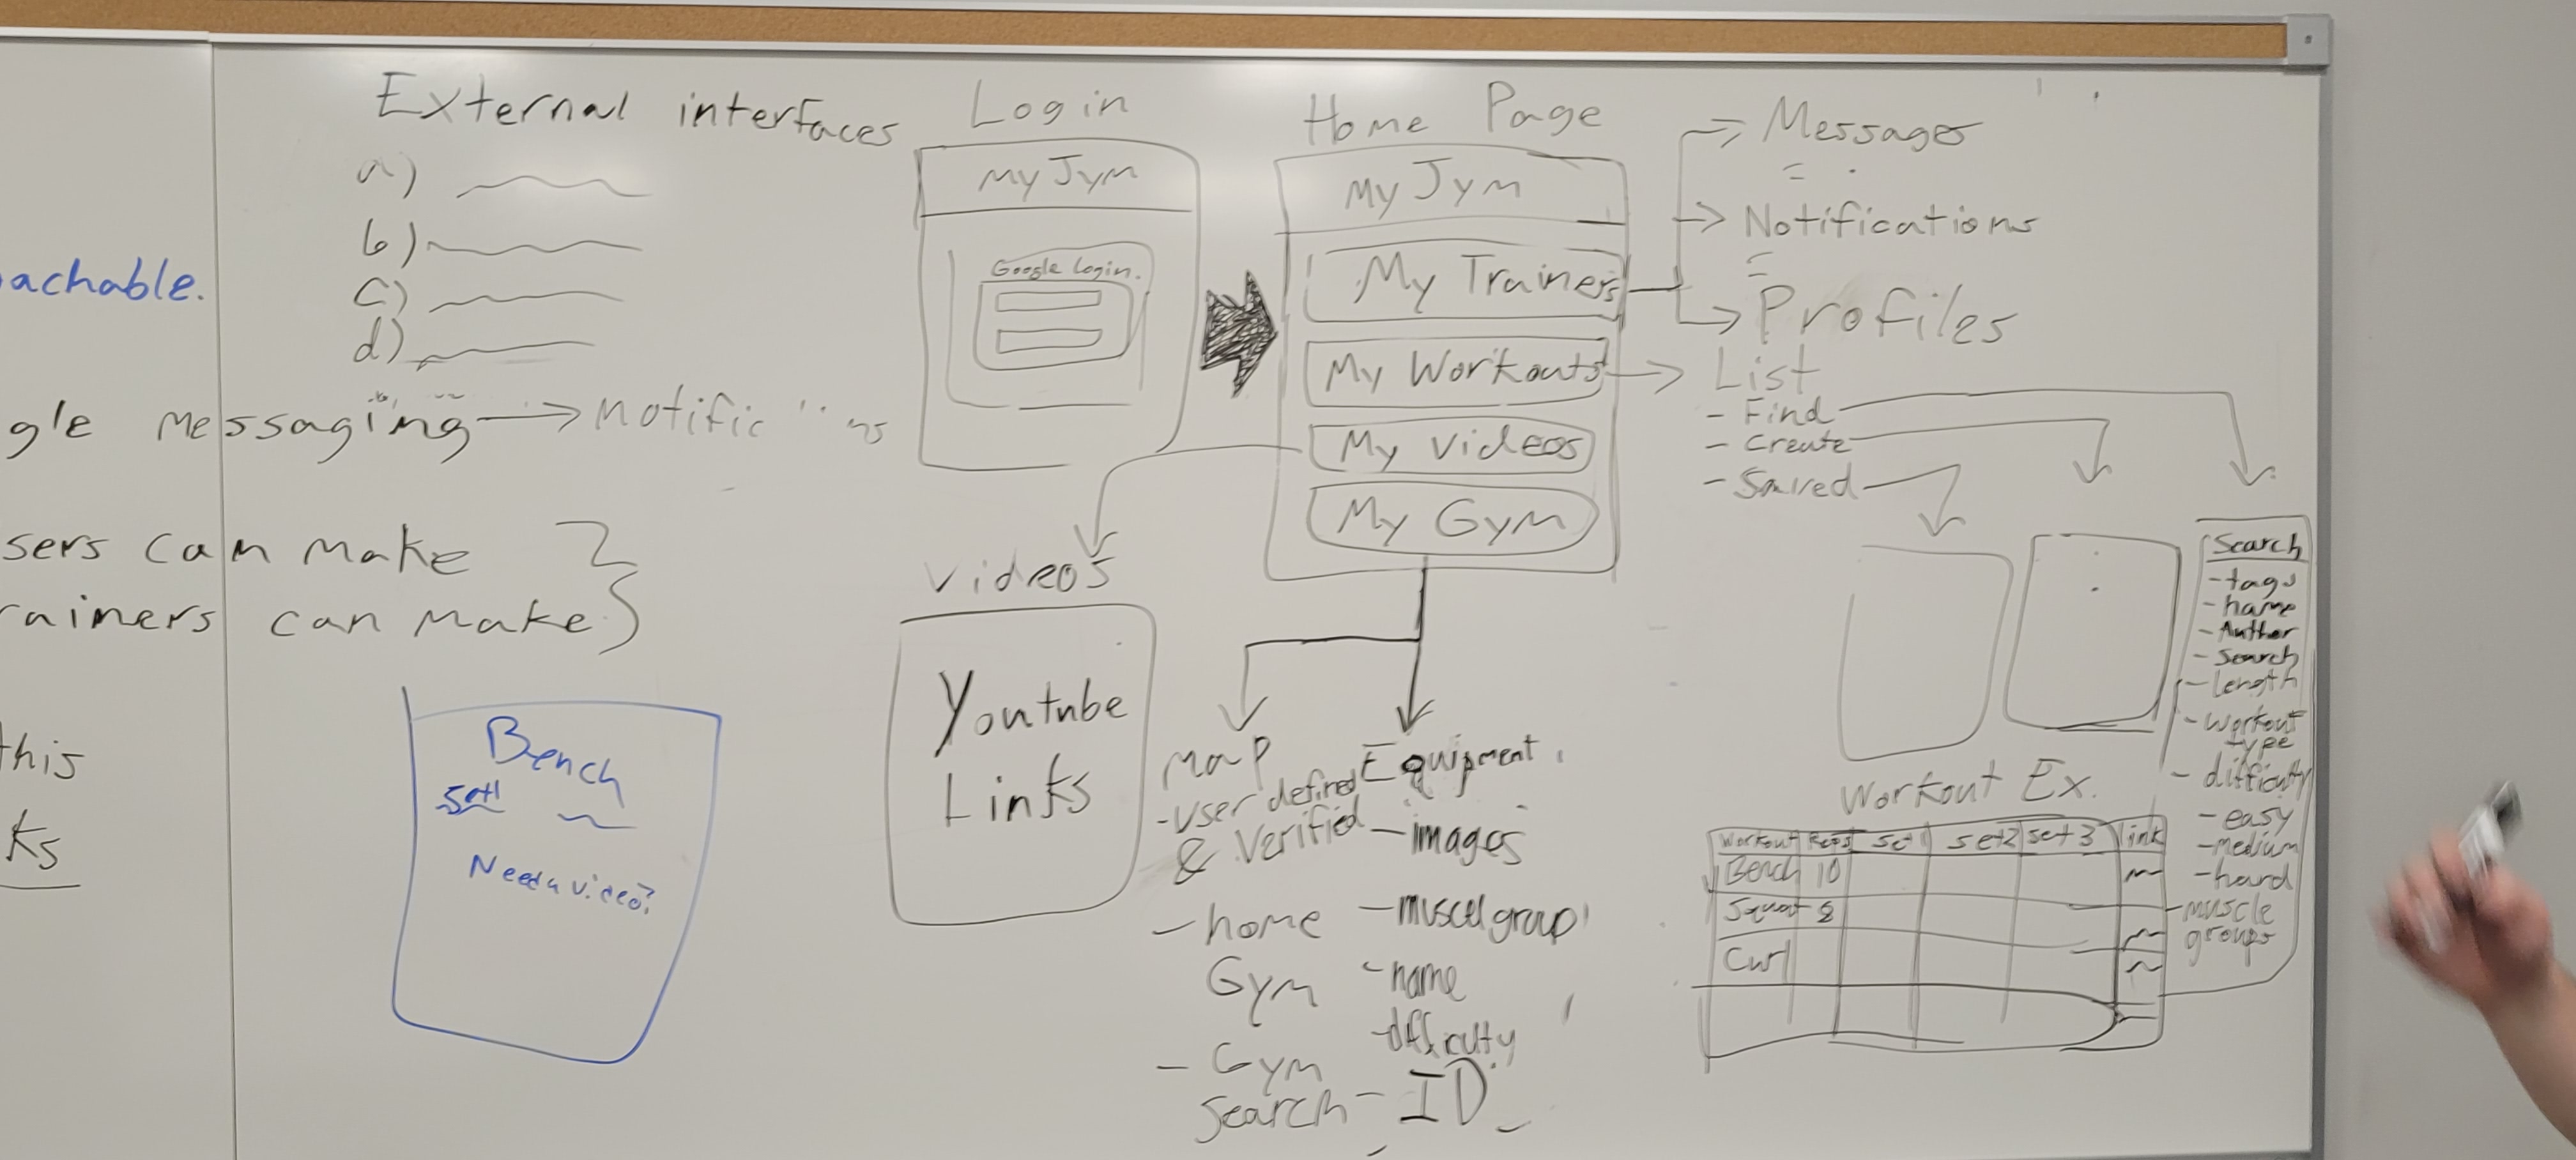 External interfaces
a)
b)
c)
d)
achable.
gle messaging → notific
sers can make
rainers can make
this
ks
Bench
Set1
Need a video?
Login
My Jym
Google Login.
Home Page
My Jym
My Trainers
My Workouts
My Videos
My Gym
→ Messages
→ Notifications
→ Profiles
→ List
- Find
- Create
- Saved
Videos
Youtube
Links
Map
- User defined
& Verified
- home
Gym
- Gym
Search
Equipment
- images
- muscel group
- name
- difficulty
- ID
Search
- tags
- name
- Auther
- Search
- length
- workout
type
- difficulty
- easy
- medium
- hard
- muscle
groups
Workout Ex.
Workout Reps Set 1 Set 2 Set 3 link
Bench 10
Squat 8
Curl